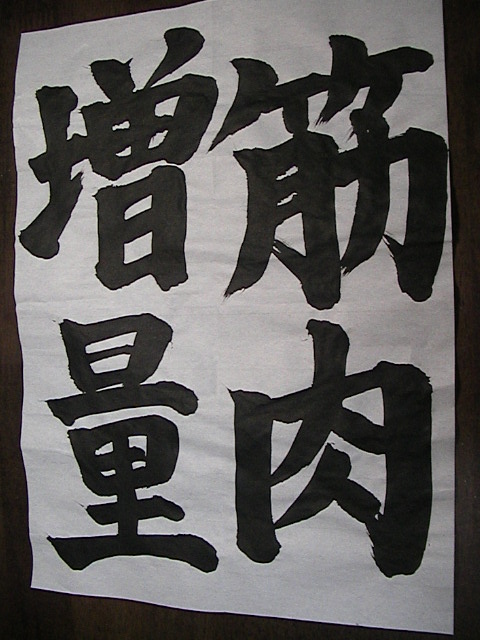 筋肉
増量